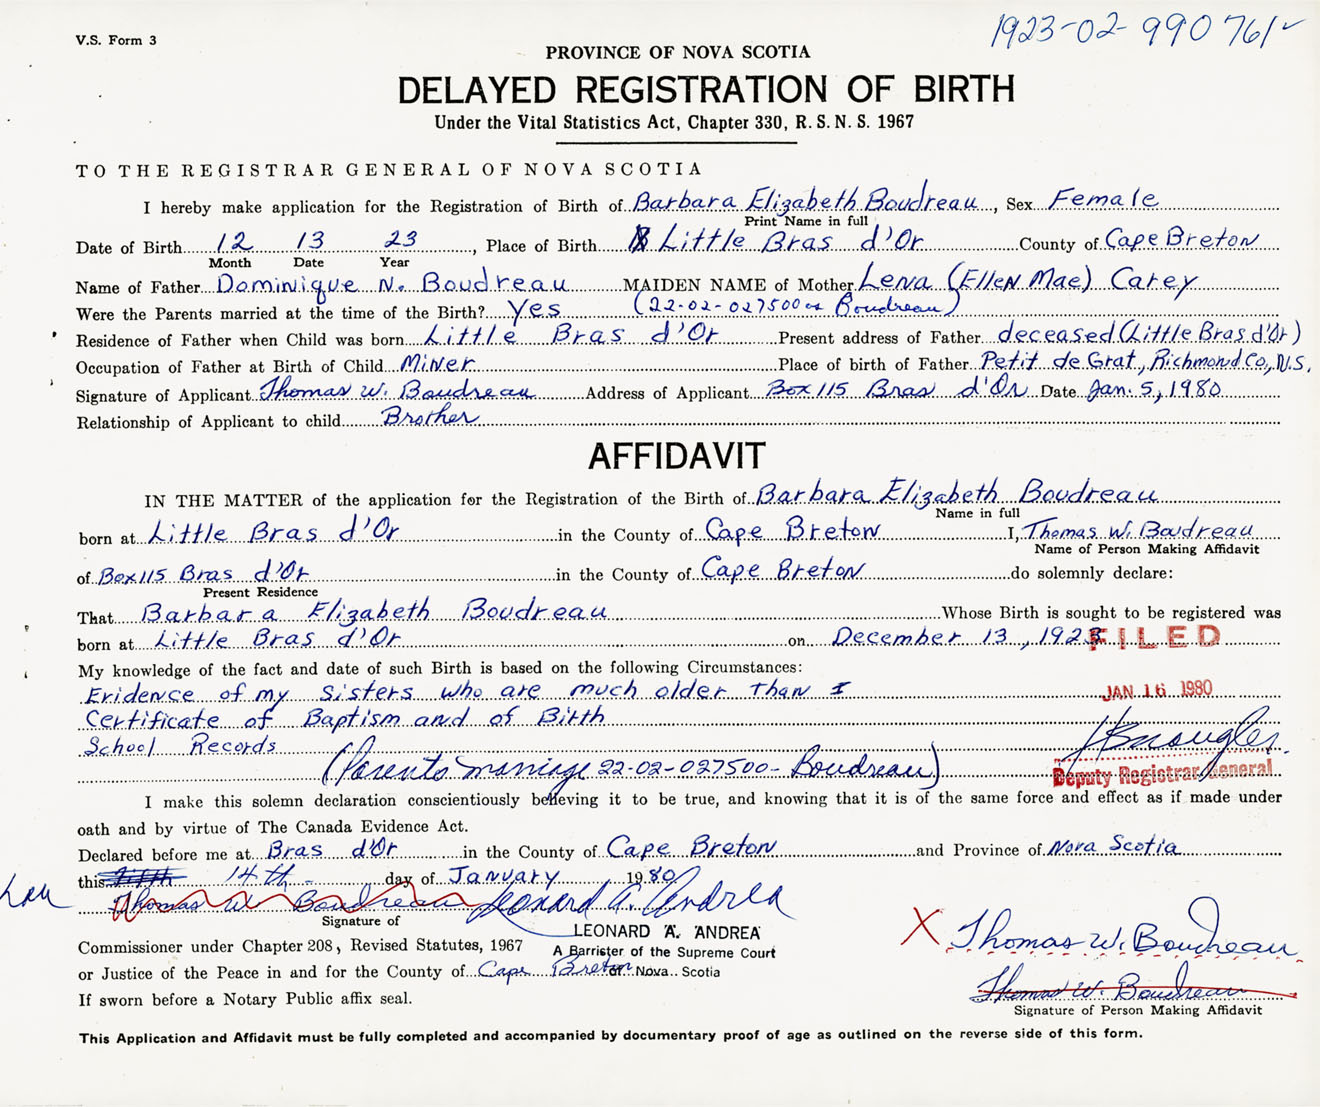 V.S. Form 3
1923-02-990761
PROVINCE OF NOVA SCOTIA
DELAYED REGISTRATION OF BIRTH
Under the Vital Statistics Act, Chapter 330, R. S. N. S. 1967
TO THE REGISTRAR GENERAL OF NOVA SCOTIA
I hereby make application for the Registration of Birth of Barbara Elizabeth Boudreau, Sex Female
Print Name in full
Date of Birth 12 13 23, Place of Birth Little Bras d'Or County of Cape Breton
Month Date Year
Name of Father Dominique N. Boudreau MAIDEN NAME of Mother Lena (Ellen Mae) Carey
Were the Parents married at the time of the Birth? Yes (22-02-027500 as Boudreau)
Residence of Father when Child was born Little Bras d'Or Present address of Father deceased (Little Bras d'Or)
Occupation of Father at Birth of Child Miner Place of birth of Father Petit de Grat, Richmond Co., N.S.
Signature of Applicant Thomas W. Boudreau Address of Applicant Box 115 Bras d'Or Date Jan. 5, 1980
Relationship of Applicant to child Brother
AFFIDAVIT
IN THE MATTER of the application for the Registration of the Birth of Barbara Elizabeth Boudreau
Name in full
born at Little Bras d'Or in the County of Cape Breton I, Thomas W. Boudreau
Name of Person Making Affidavit
of Box 115 Bras d'Or in the County of Cape Breton do solemnly declare:
Present Residence
That Barbara Elizabeth Boudreau Whose Birth is sought to be registered was
born at Little Bras d'Or on December 13, 1923 FILED
My knowledge of the fact and date of such Birth is based on the following Circumstances:
Evidence of my sisters who are much older than I JAN 16 1980
Certificate of Baptism and of Birth
School Records
(Parents marriage 22-02-027500 - Boudreau) Deputy Registrar General
I make this solemn declaration conscientiously believing it to be true, and knowing that it is of the same force and effect as if made under
oath and by virtue of The Canada Evidence Act.
Declared before me at Bras d'Or in the County of Cape Breton and Province of Nova Scotia
this fifth 14th day of January 1980
Thomas W. Boudreau Leonard A. Andrea
Signature of
LEONARD A. ANDREA
Commissioner under Chapter 208, Revised Statutes, 1967 A Barrister of the Supreme Court
X Thomas W. Boudreau
or Justice of the Peace in and for the County of Cape Breton of Nova Scotia
Thomas W. Boudreau
If sworn before a Notary Public affix seal.
Signature of Person Making Affidavit
This Application and Affidavit must be fully completed and accompanied by documentary proof of age as outlined on the reverse side of this form.